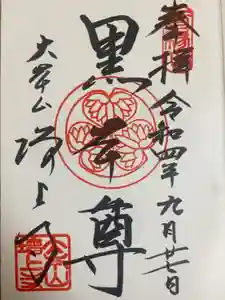 奉拝 令和四年九月廿七日
黒本尊
大本山 増上寺